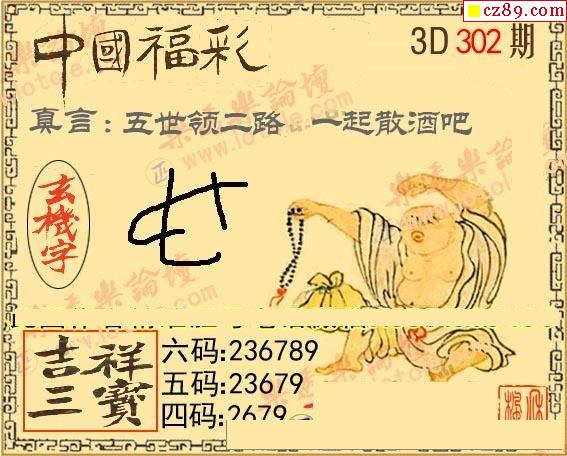 cz89.com
中國福彩
3D 302 期
真言：五世领二路 一起散酒吧
玄機字
吉祥三寶
六码:236789
五码:23679
四码:2679